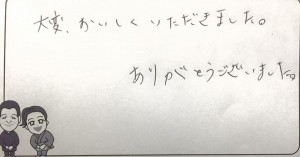 大変、おいしくいただきました。
ありがとうございました。